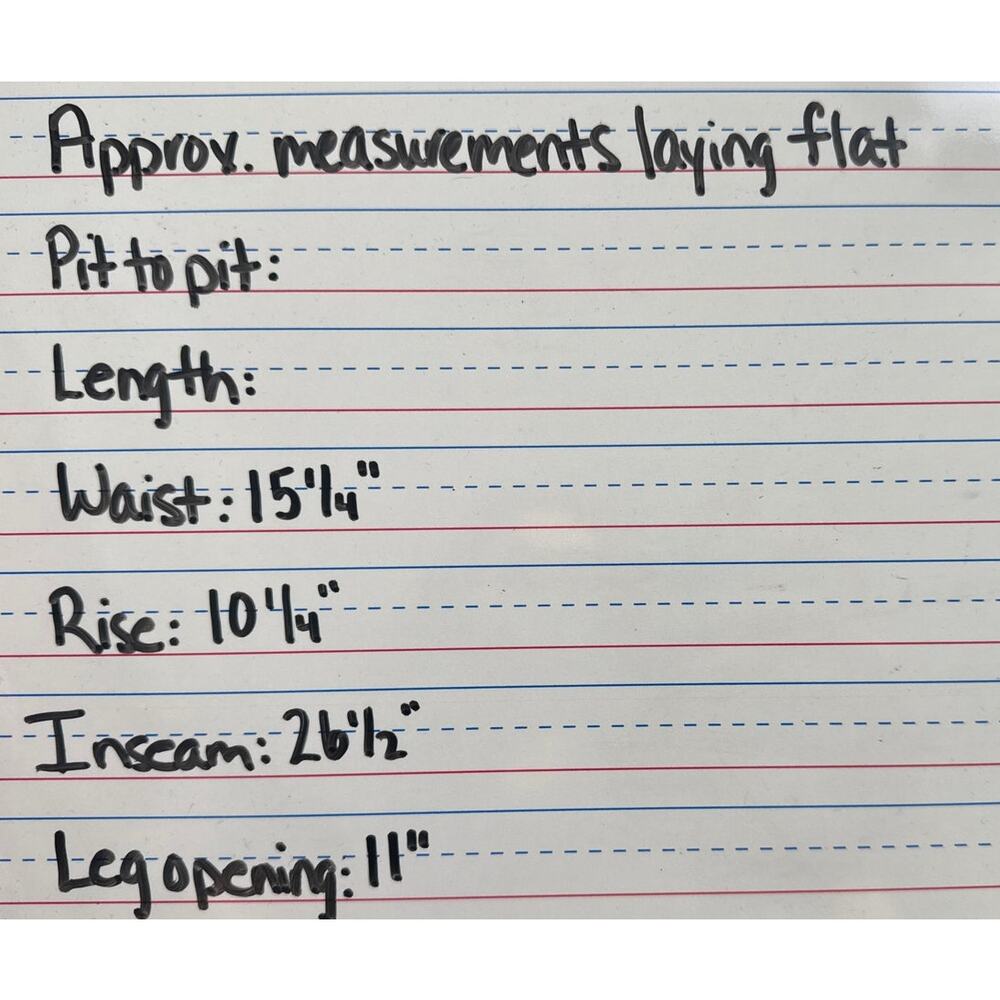 Approx. measurements laying flat
Pit to pit:
Length:
Waist: 15 1/4"
Rise: 10 1/4"
Inseam: 26 1/2"
Leg opening: 11"